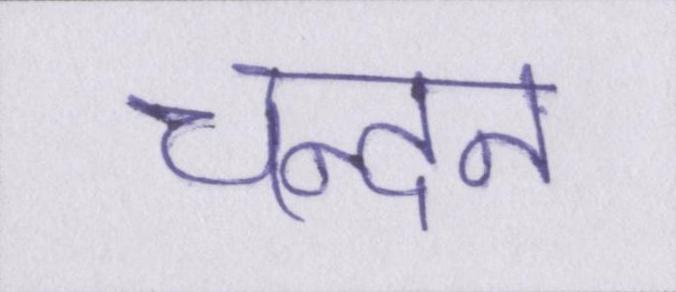 चन्दन